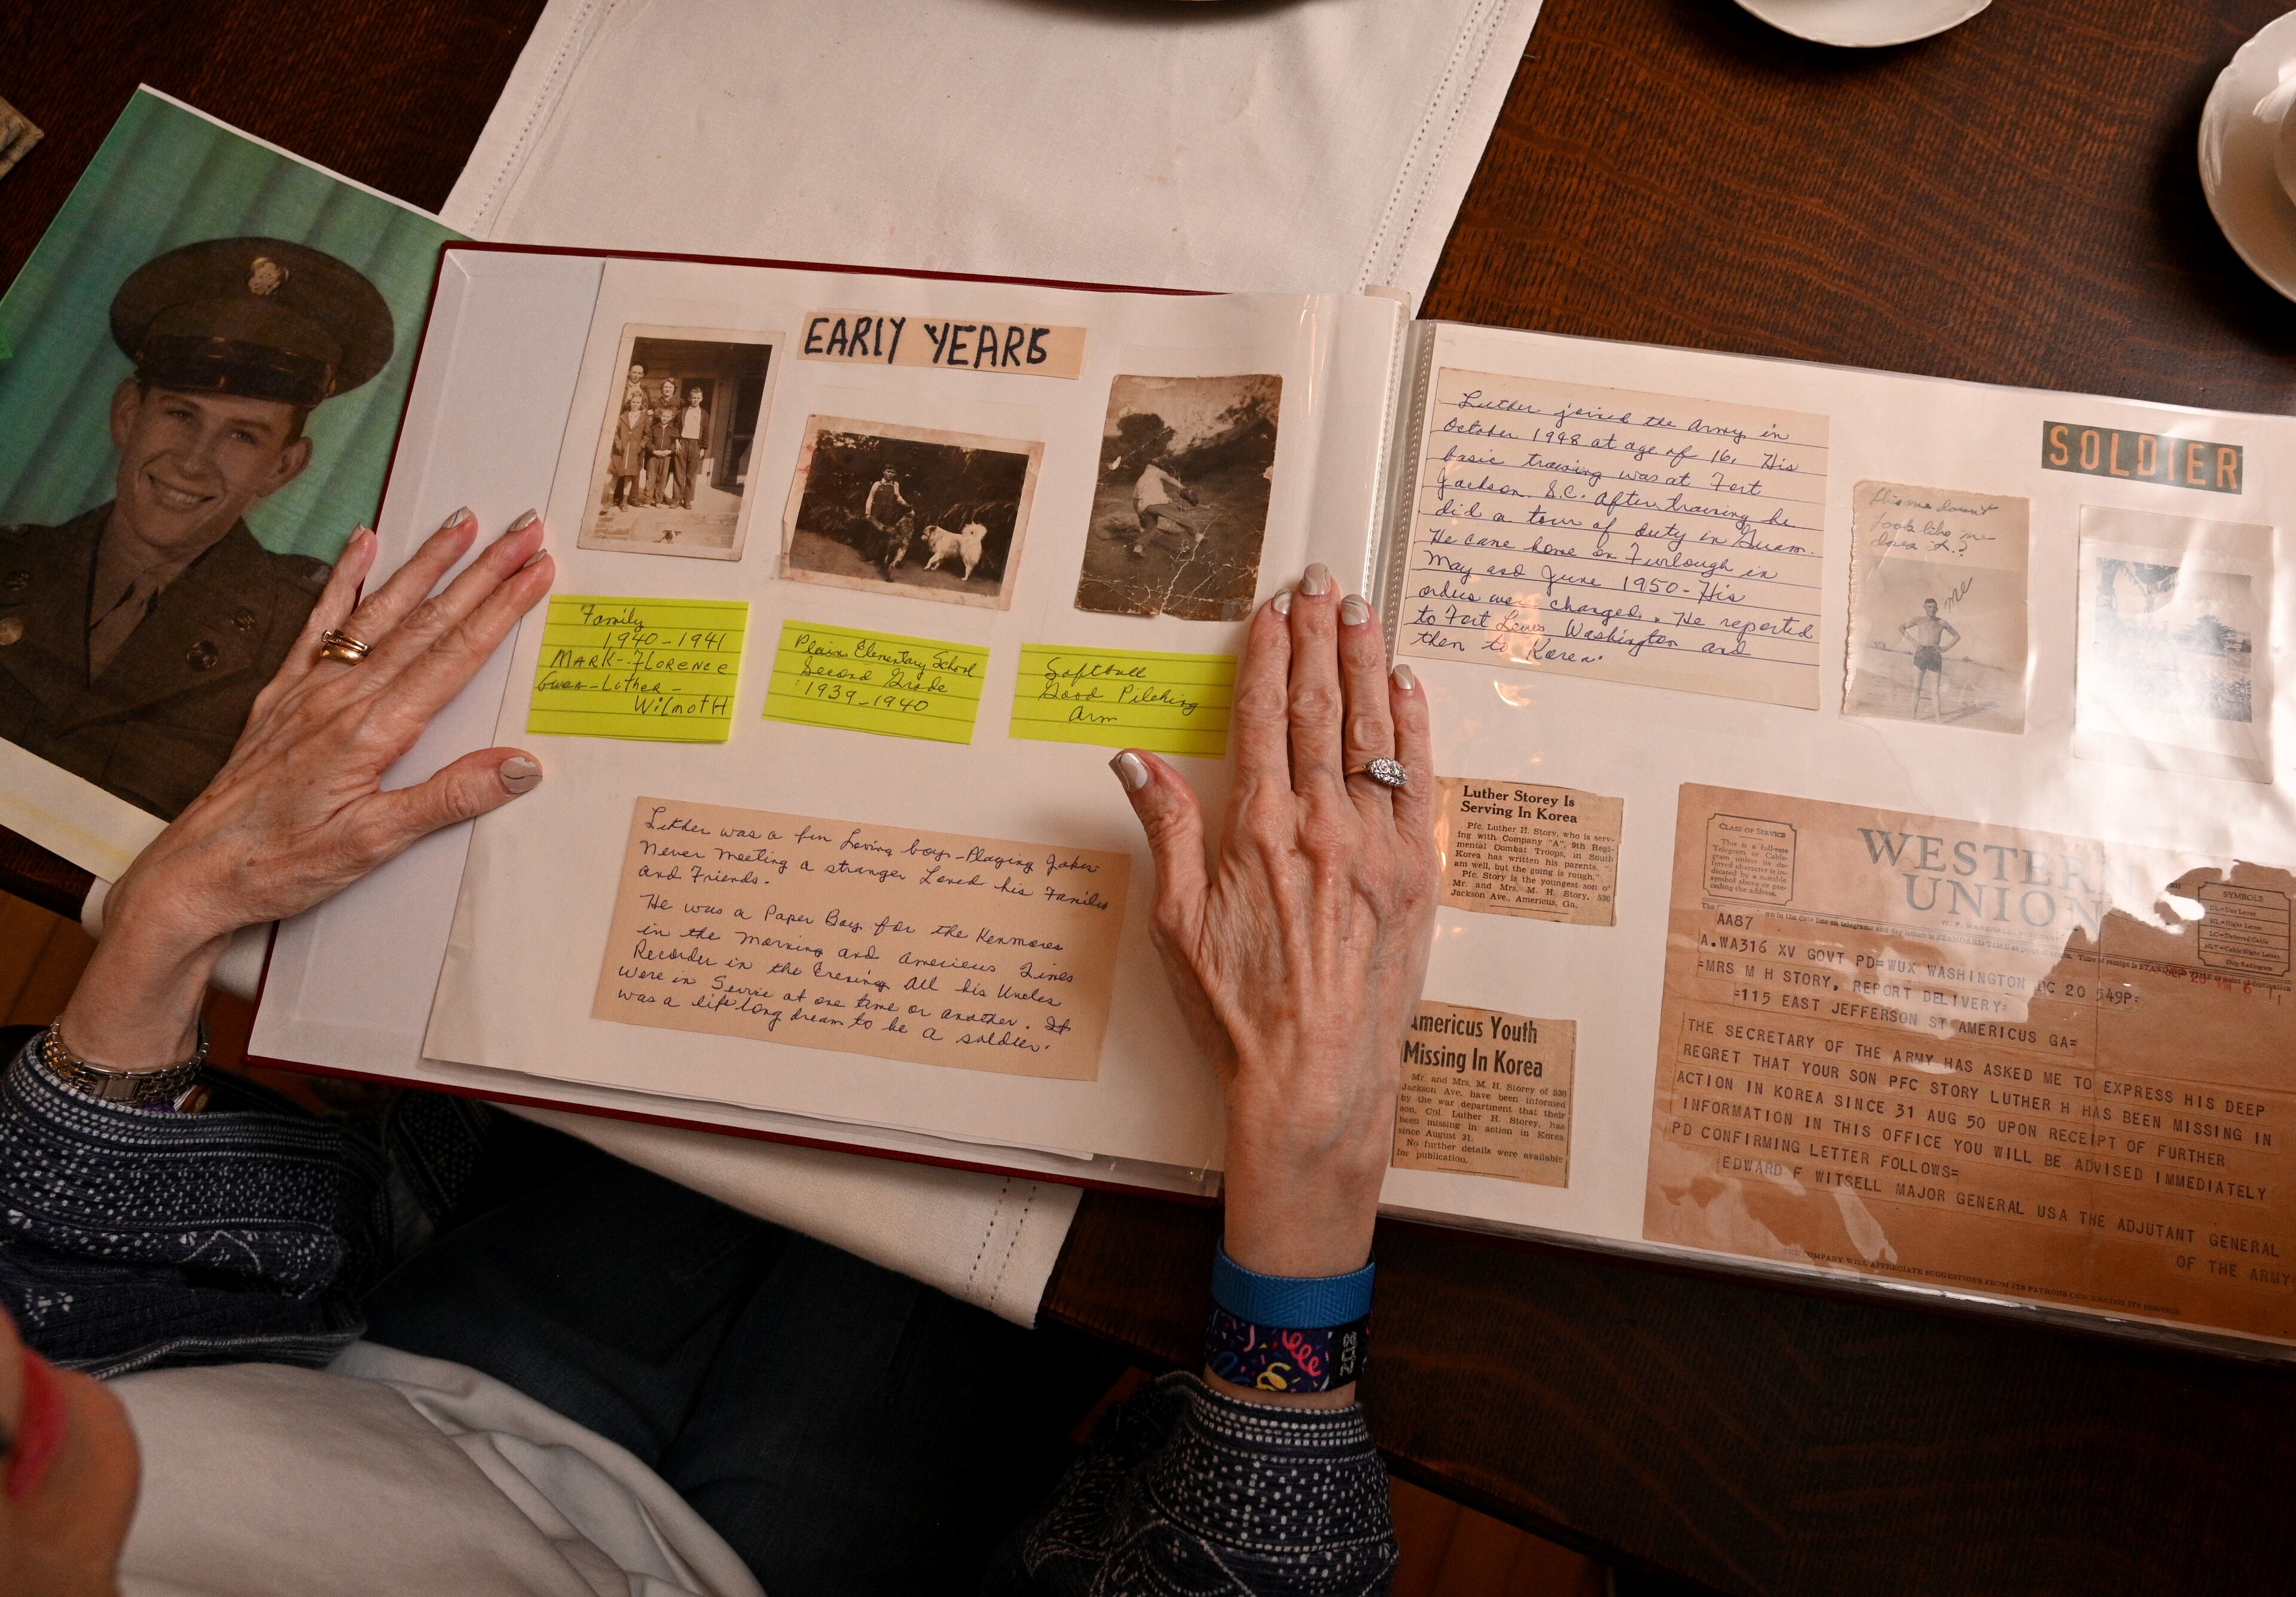 EARLY YEARS
Family
1940-1941
MARK-FLORENCE
Gwen-Luther-
WilmotH
Plain Elementary School
Second Grade
1939-1940
Softball
Good Pitching
Arm
Luther was a fun Loving boy-Playing Jokes
Never meeting a stranger Loved his Families
and Friends.
He was a Paper Boy for the Kenmores
in the Morning and Americus Times
Recorder in the Evening All his Uncles
were in Service at one time or another. It
was a life long dream to be a soldier.
SOLDIER
Luther joined the Army in
October 1948 at age of 16. His
basic training was at Fort
Jackson. S.C. After training he
did a tour of duty in Guam.
He came home on Furlough in
May and June 1950- His
orders were changed. He reported
to Fort Lewis Washington and
then to Korea.
This one doesn't
look like me
does it.?
me
Luther Storey Is
Serving In Korea
Pfc. Luther H. Story, who is serv-
ing with Company "A", 9th Regi-
mental Combat Troops, in South
Korea has written his parents, "I
am well, but the going is rough."
Pfc. Story is the youngest son of
Mr. and Mrs. M. H. Story, 530
Jackson Ave., Americus, Ga.
Americus Youth
Missing In Korea
Mr. and Mrs. M. H. Storey of 530
Jackson Ave. have been informed
by the war department that their
son, Col. Luther H. Storey, has
been missing in action in Korea
since August 31.
No further details were available
for publication.
CLASS OF SERVICE
This is a full-rate
Telegram or Cable-
gram unless its de-
ferred character is in-
dicated by a suitable
symbol above or pre-
ceding the address.
WESTERN
UNION
SYMBOLS
DL=Day Letter
NL=Night Letter
LC=Deferred Cable
NLT=Cable Night Letter
Ship Radiogram
AA87
A.WA316 XV GOVT PD=WUX WASHINGTON DC 20 549P=
=MRS M H STORY, REPORT DELIVERY=
=115 EAST JEFFERSON ST AMERICUS GA=
THE SECRETARY OF THE ARMY HAS ASKED ME TO EXPRESS HIS DEEP
REGRET THAT YOUR SON PFC STORY LUTHER H HAS BEEN MISSING IN
ACTION IN KOREA SINCE 31 AUG 50 UPON RECEIPT OF FURTHER
INFORMATION IN THIS OFFICE YOU WILL BE ADVISED IMMEDIATELY
PD CONFIRMING LETTER FOLLOWS=
EDWARD F WITSELL MAJOR GENERAL USA THE ADJUTANT GENERAL
OF THE ARMY
THE COMPANY WILL APPRECIATE SUGGESTIONS FROM ITS PATRONS CONCERNING ITS SERVICE